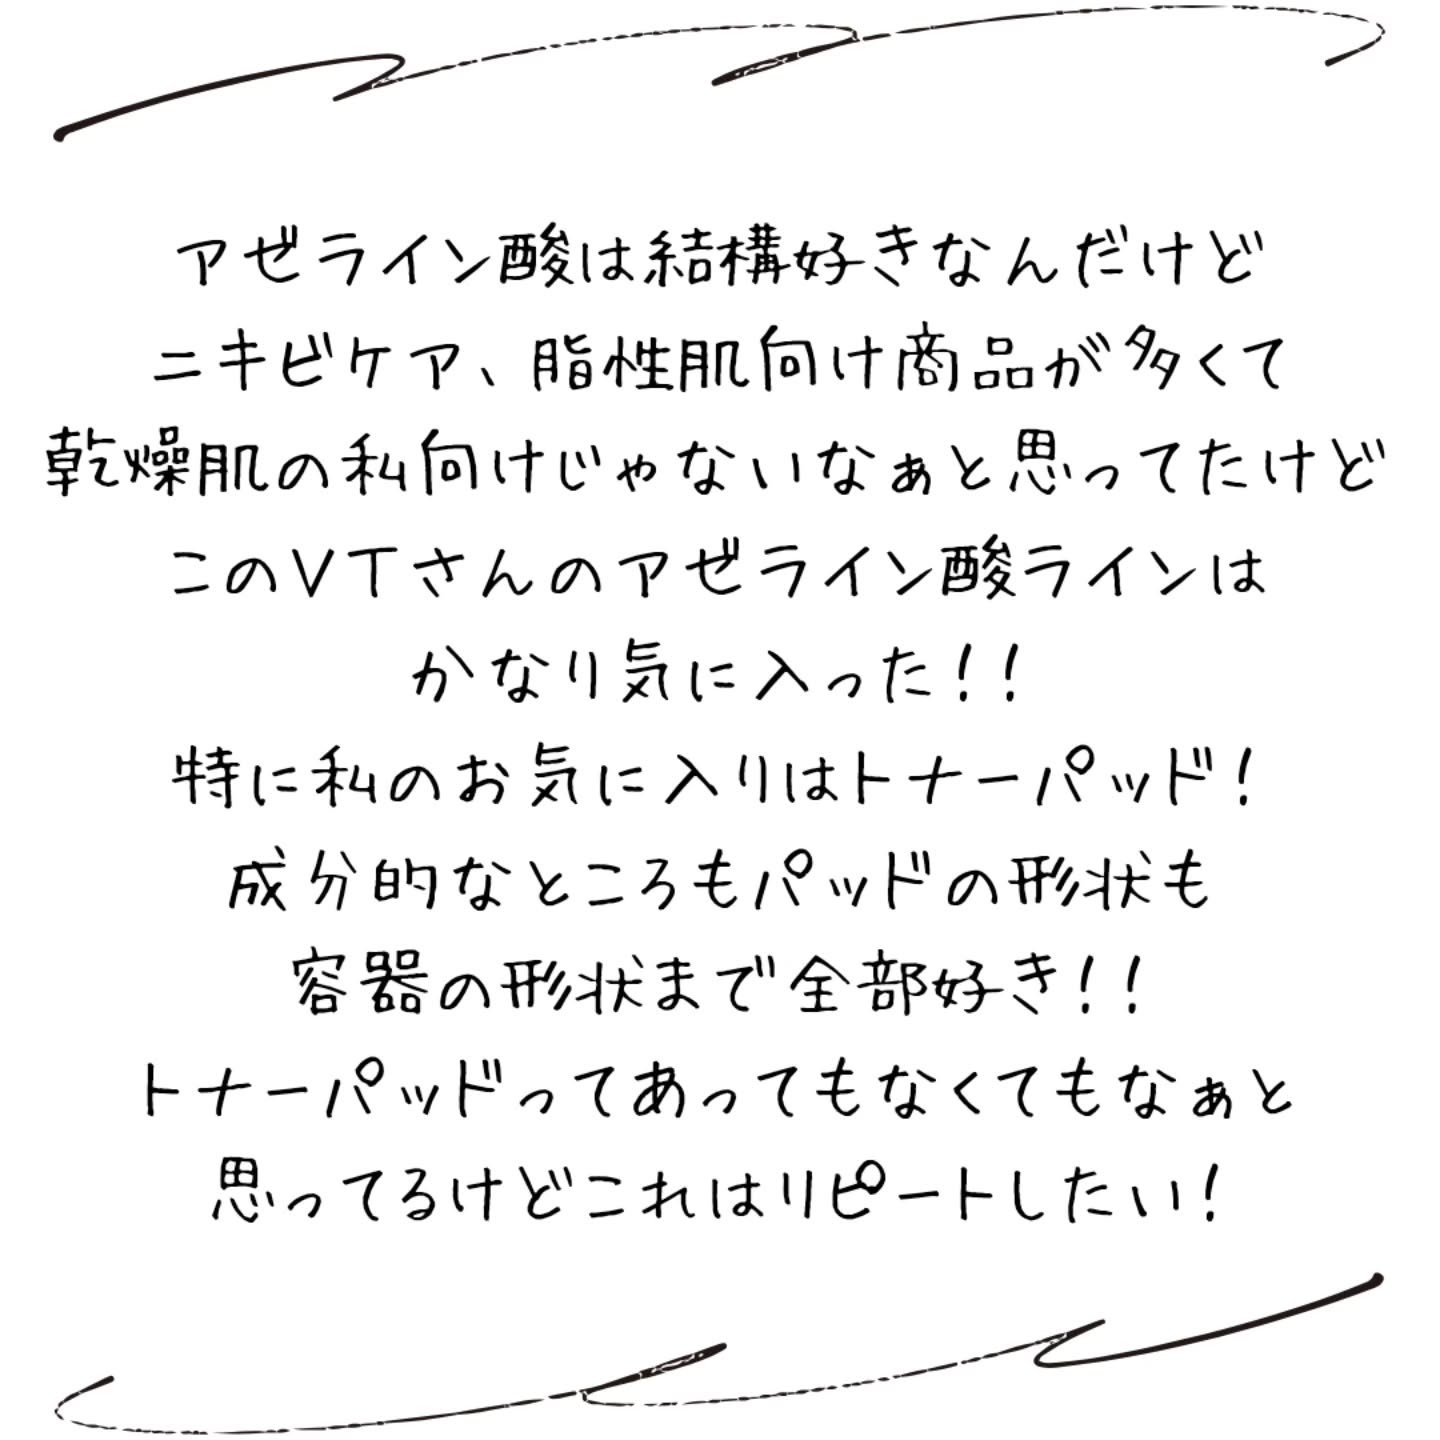 アゼライン酸は結構好きなんだけど
ニキビケア、脂性肌向け商品が多くて
乾燥肌の私向けじゃないなぁと思ってたけど
このVTさんのアゼライン酸ラインは
かなり気に入った！！
特に私のお気に入りはトナーパッド！
成分的なところもパッドの形状も
容器の形状まで全部好き！！
トナーパッドってあってもなくてもなぁと
思ってるけどこれはリピートしたい！